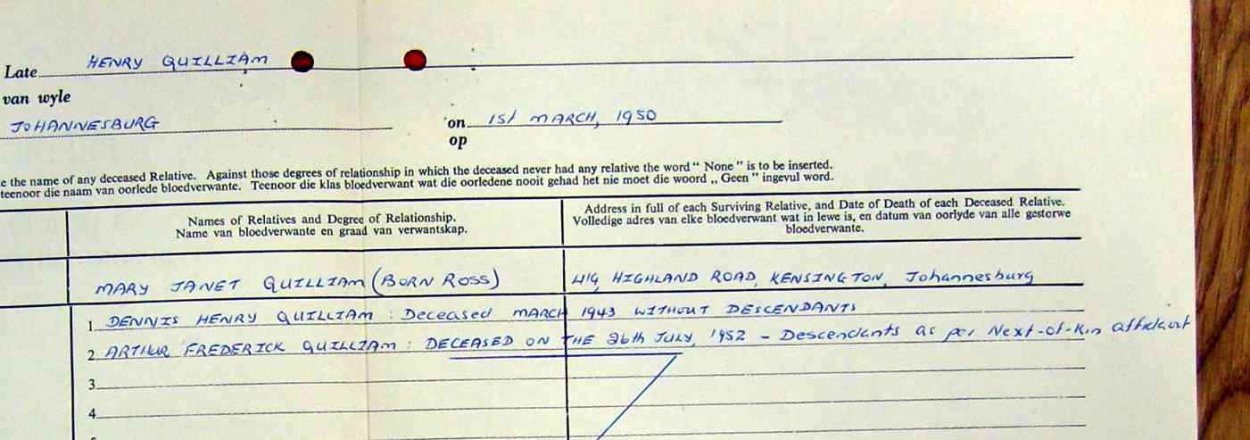 Late HENRY QUILLIAM
van wyle
JOHANNESBURG on 1st MARCH, 1950
op
e the name of any deceased Relative. Against those degrees of relationship in which the deceased never had any relative the word " None " is to be inserted.
teenoor die naam van oorlede bloedverwante. Teenoor die klas bloedverwant wat die oorledene nooit gehad het nie moet die woord „ Geen " ingevul word.
Names of Relatives and Degree of Relationship.
Name van bloedverwante en graad van verwantskap.
Address in full of each Surviving Relative, and Date of Death of each Deceased Relative.
Volledige adres van elke bloedverwant wat in lewe is, en datum van oorlyde van alle gestorwe
bloedverwante.
MARY JANET QUILLIAM (BORN ROSS) 419 HIGHLAND ROAD, KENSINGTON, Johannesburg
1 DENNIS HENRY QUILLIAM : Deceased MARCH 1943 WITHOUT DESCENDANTS
2 ARTHUR FREDERICK QUILLIAM : DECEASED ON THE 26th JULY, 1952 - Descendants as per Next-of-Kin affidavit
3
4